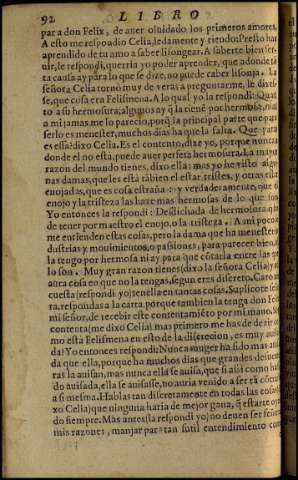 92 LIBRO
para don Felix, de auer oluidado los primeros amores.
A esto me respondio Celia, ledamente y riendo: Presto has
aprendido de tu amo a saber lisongear. A saberte bien ser-
uir, le respondi, querria yo poder aprender, que adonde tã
ta causa ay para lo que se dize, no puede caber lisonja. La
señora Celia torno muy de veras a preguntarme, le dixes-
se, que cosa era Felismena. A lo qual yo la respondi: Quãto
to a su hermosura, algunos ay q̃ la tienẽ por hermosa, mas
a mi jamas me lo parecio, porq̃ la principal parte que para
serlo es menester, muchos dias ha que la falta. Que parte
es essa? dixo Celia. Es el contento, dixe yo, porque nunca a
donde el no està, puede auer perfeta hermosura. La mayor
razon del mundo tienes, dixo ella: mas yo he visto algu-
nas damas, que les està tãbien el estar tristes, y otras el estar
enojadas, que es cosa estraña: y verdaderamente, que el
enojo y la tristeza las haze mas hermosas de lo que son.
Yo entonces la respondi: Desdichada de hermosura que
de tener por maestro el enojo, o la tristeza. A mi poco se
me entienden estas cosas, pero la dama que ha menester in
dustrias y mouimientos, o passiones, para parecer bien, ni
la tengo por hermosa ni ay para que cõtarla entre las que
lo son. Muy gran razon tienes (dixo la señora Celia) y no
aura cosa en que no la tengas, segun eres discreto. Caro me
cuesta (respondi yo) tenella en tantas cosas. Suplicote seño
ra, respondas a la carta, porque tambien la tenga don Felix
mi señor, de recebir este contentamiẽto por mi mano. Soy
contenta (me dixo Celia) mas primero me has de dezir co
mo està Felismena en esto de la discrecion, es muy auisa-
da? Yo entonces respondi: Nunca muger ha sido mas auisa
da que ella, porque ha muchos dias que grandes desuentu
ras la auisan, mas nunca ella se auisa, que si assi como ha si-
do auisada, ella se auisasse, no auria venido a ser tã cõtraria
a si mesma. Hablas tan discretamente en todas las cosas (di
xo Celia) que ninguna haria de mejor gana, q̃ estarte oyen
do siempre. Mas antes (la respondi yo) no deuen ser señora
mis razones, manjar para tan sutil entendimiento como